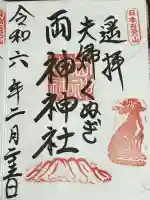 日本百名山
遙拝
夫婦くぬぎ
両神神社
令和六年二月二十三日